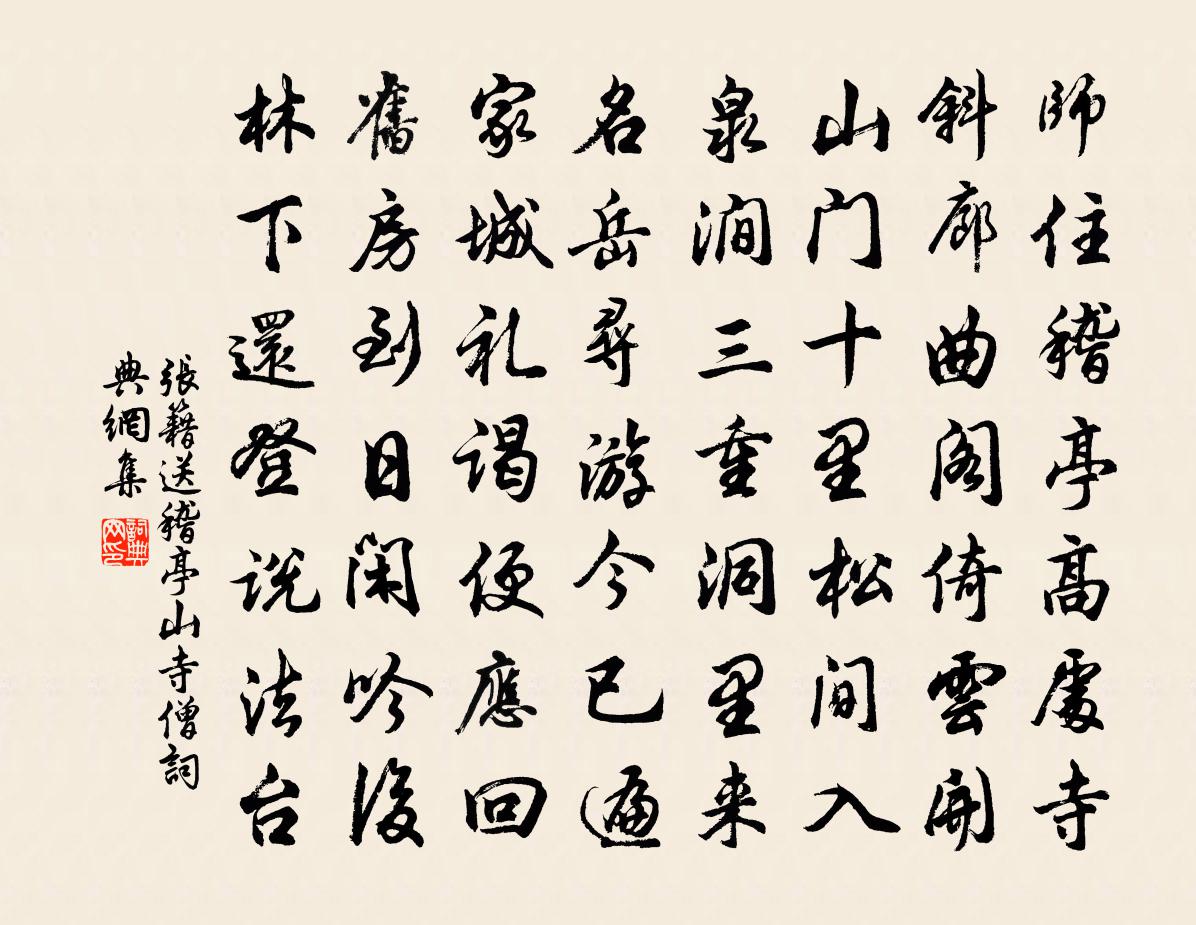 師住稽亭高處寺
斜廊曲阁倚雲開
山门十里松间入
泉澗三重洞里来
名岳尋游今已遍
家城礼谒便應回
舊房到日閑吟後
林下還登说法台
張籍送稽亭山寺僧詞
典網集
詞典
网印